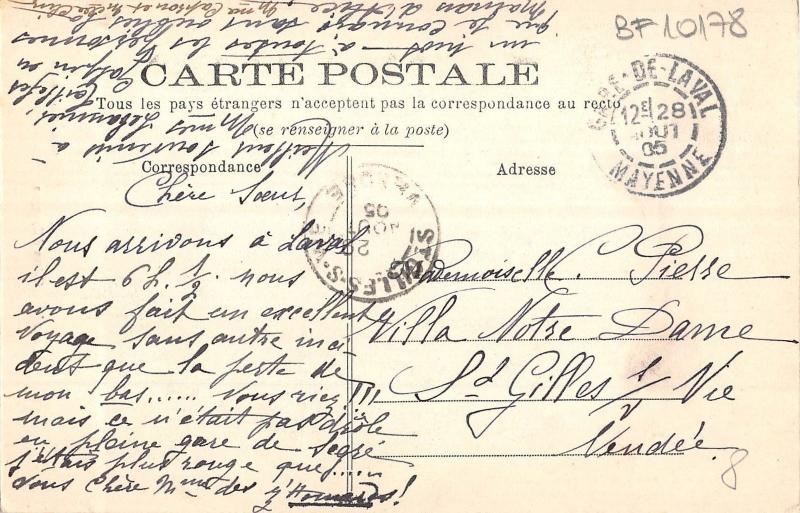 BF 10178
CARTE POSTALE
Tous les pays étrangers n'acceptent pas la correspondance au recto
(se renseigner à la poste)
Correspondance
Adresse
GARE-DE-LAVAL
12 28
AOUT
05
MAYENNE
Chère Sœur,
Nous arrivons à Laval
il est 6h ½. nous
avons fait un excellent
voyage sans autre inci
dent que la perte de
mon bas...... Vous riez !!!
mais ce n'était pas drôle
en pleine gare de Segré
j'étais plus rouge que......
vous chère Mme des Homards!
Mademoiselle C. Pierre
Villa Notre Dame
St Gilles s/ Vie
Vendée
8
Meilleur souvenir à
Mmes
un mot à toutes les personnes
que je connais sans oublier